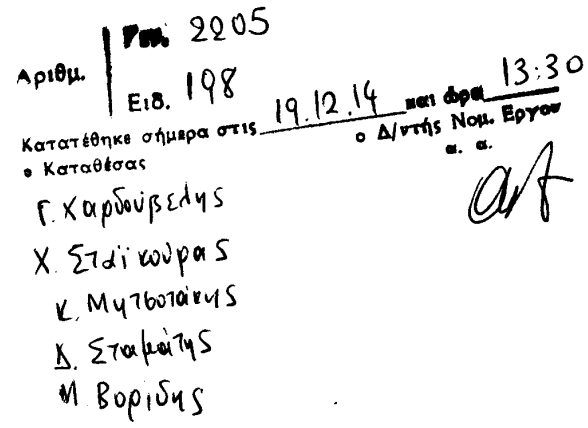 Αριθμ. Γεν. 2205
Ειδ. 198
Κατατέθηκε σήμερα στις 19.12.14 και ώρα 13:30
ο Καταθέσας
ο Δ/ντής Νομ. Έργου
α. α.
Γ. Χαρδούβελης
Χ. Σταϊκούρας
Κ. Μητσοτάκης
Δ. Σταμάτης
Μ Βορίδης